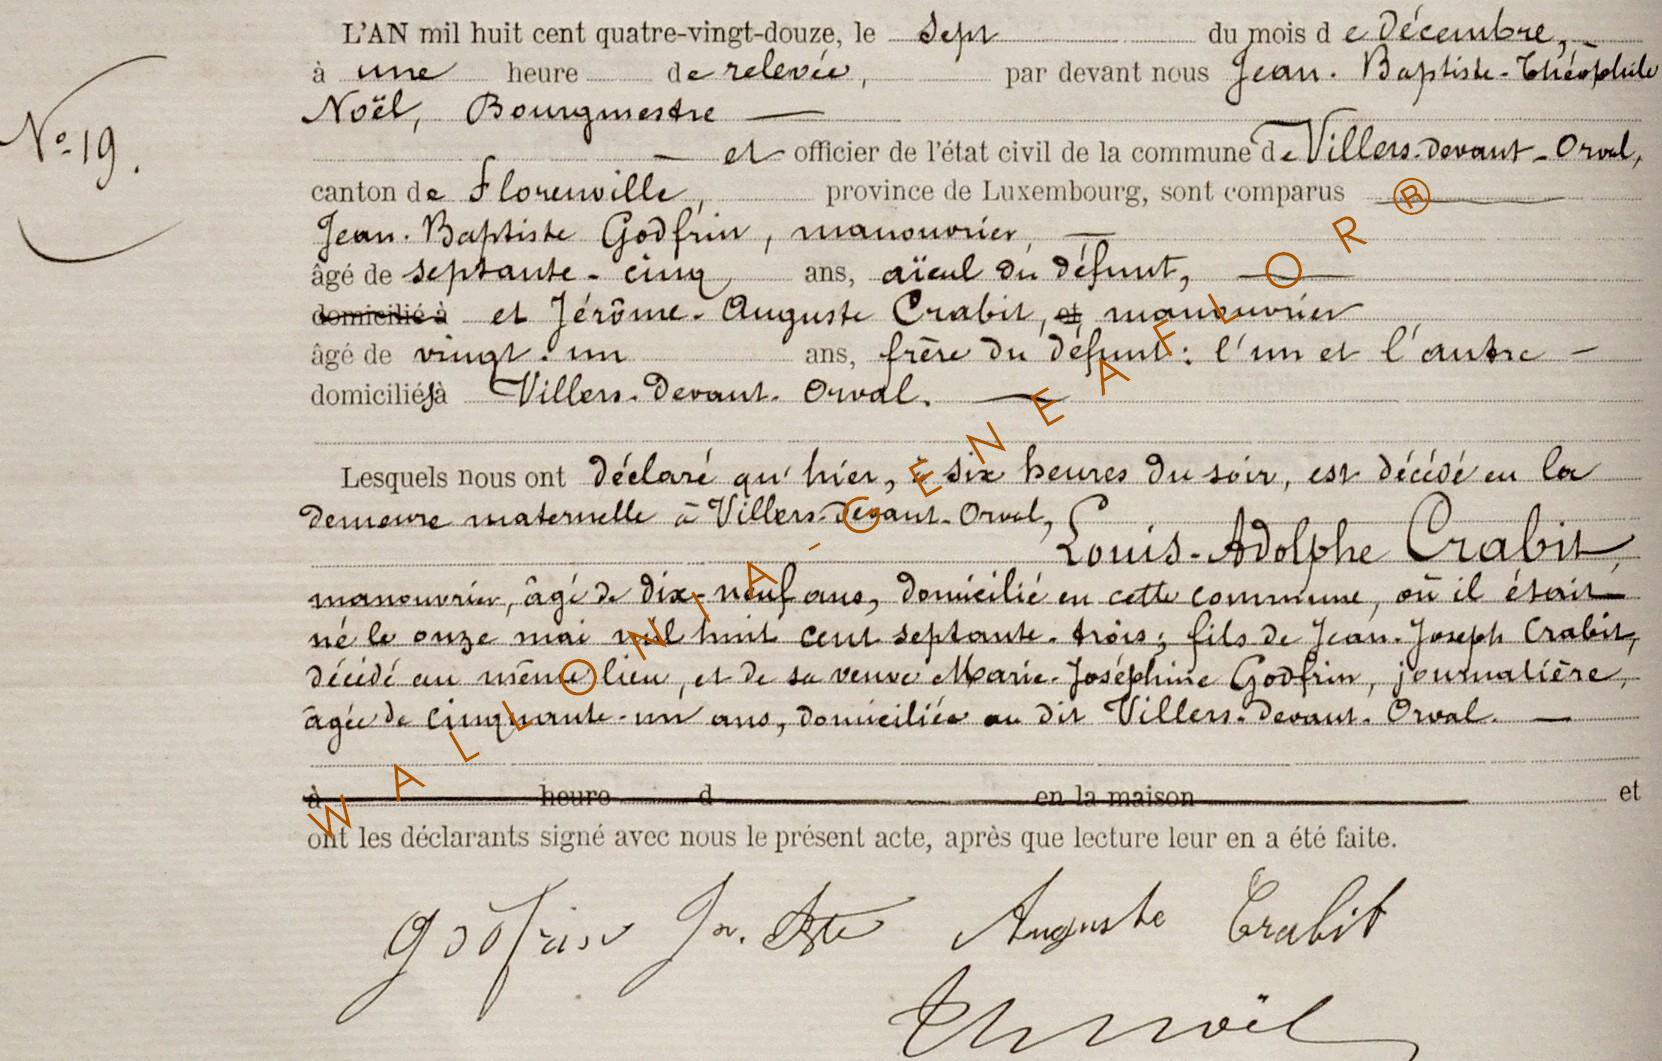 L'AN mil huit cent quatre-vingt-douze, le sept du mois de Décembre,
à une heure de relevée, par devant nous Jean-Baptiste-Théophile
Noël, Bourgmestre
N° 19.
et officier de l'état civil de la commune de Villers-devant-Orval,
canton de Florenville, province de Luxembourg, sont comparus
Jean-Baptiste Godfrin, manouvrier,
âgé de septante-cinq ans, aïeul du défunt,
domicilié à et Jérôme-Auguste Crabit, et manouvrier
âgé de vingt-un ans, frère du défunt: l'un et l'autre
domiciliés à Villers-devant-Orval.
Lesquels nous ont déclaré qu'hier, à six heures du soir, est décédé en la
demeure maternelle à Villers-devant-Orval,
Louis-Adolphe Crabit,
manouvrier, âgé de dix-neuf ans, domicilié en cette commune, où il était
né le onze mai mil huit cent septante-trois; fils de Jean-Joseph Crabit,
décédé au même lieu, et de sa veuve Marie-Joséphine Godfrin, journalière,
âgée de cinquante-un ans, domiciliée au dit Villers-devant-Orval.
à heure d en la maison et
ont les déclarants signé avec nous le présent acte, après que lecture leur en a été faite.
Godfrin Jn. Bte Auguste Crabit
Th Noël
WALLONIA-GENEAFLOR®